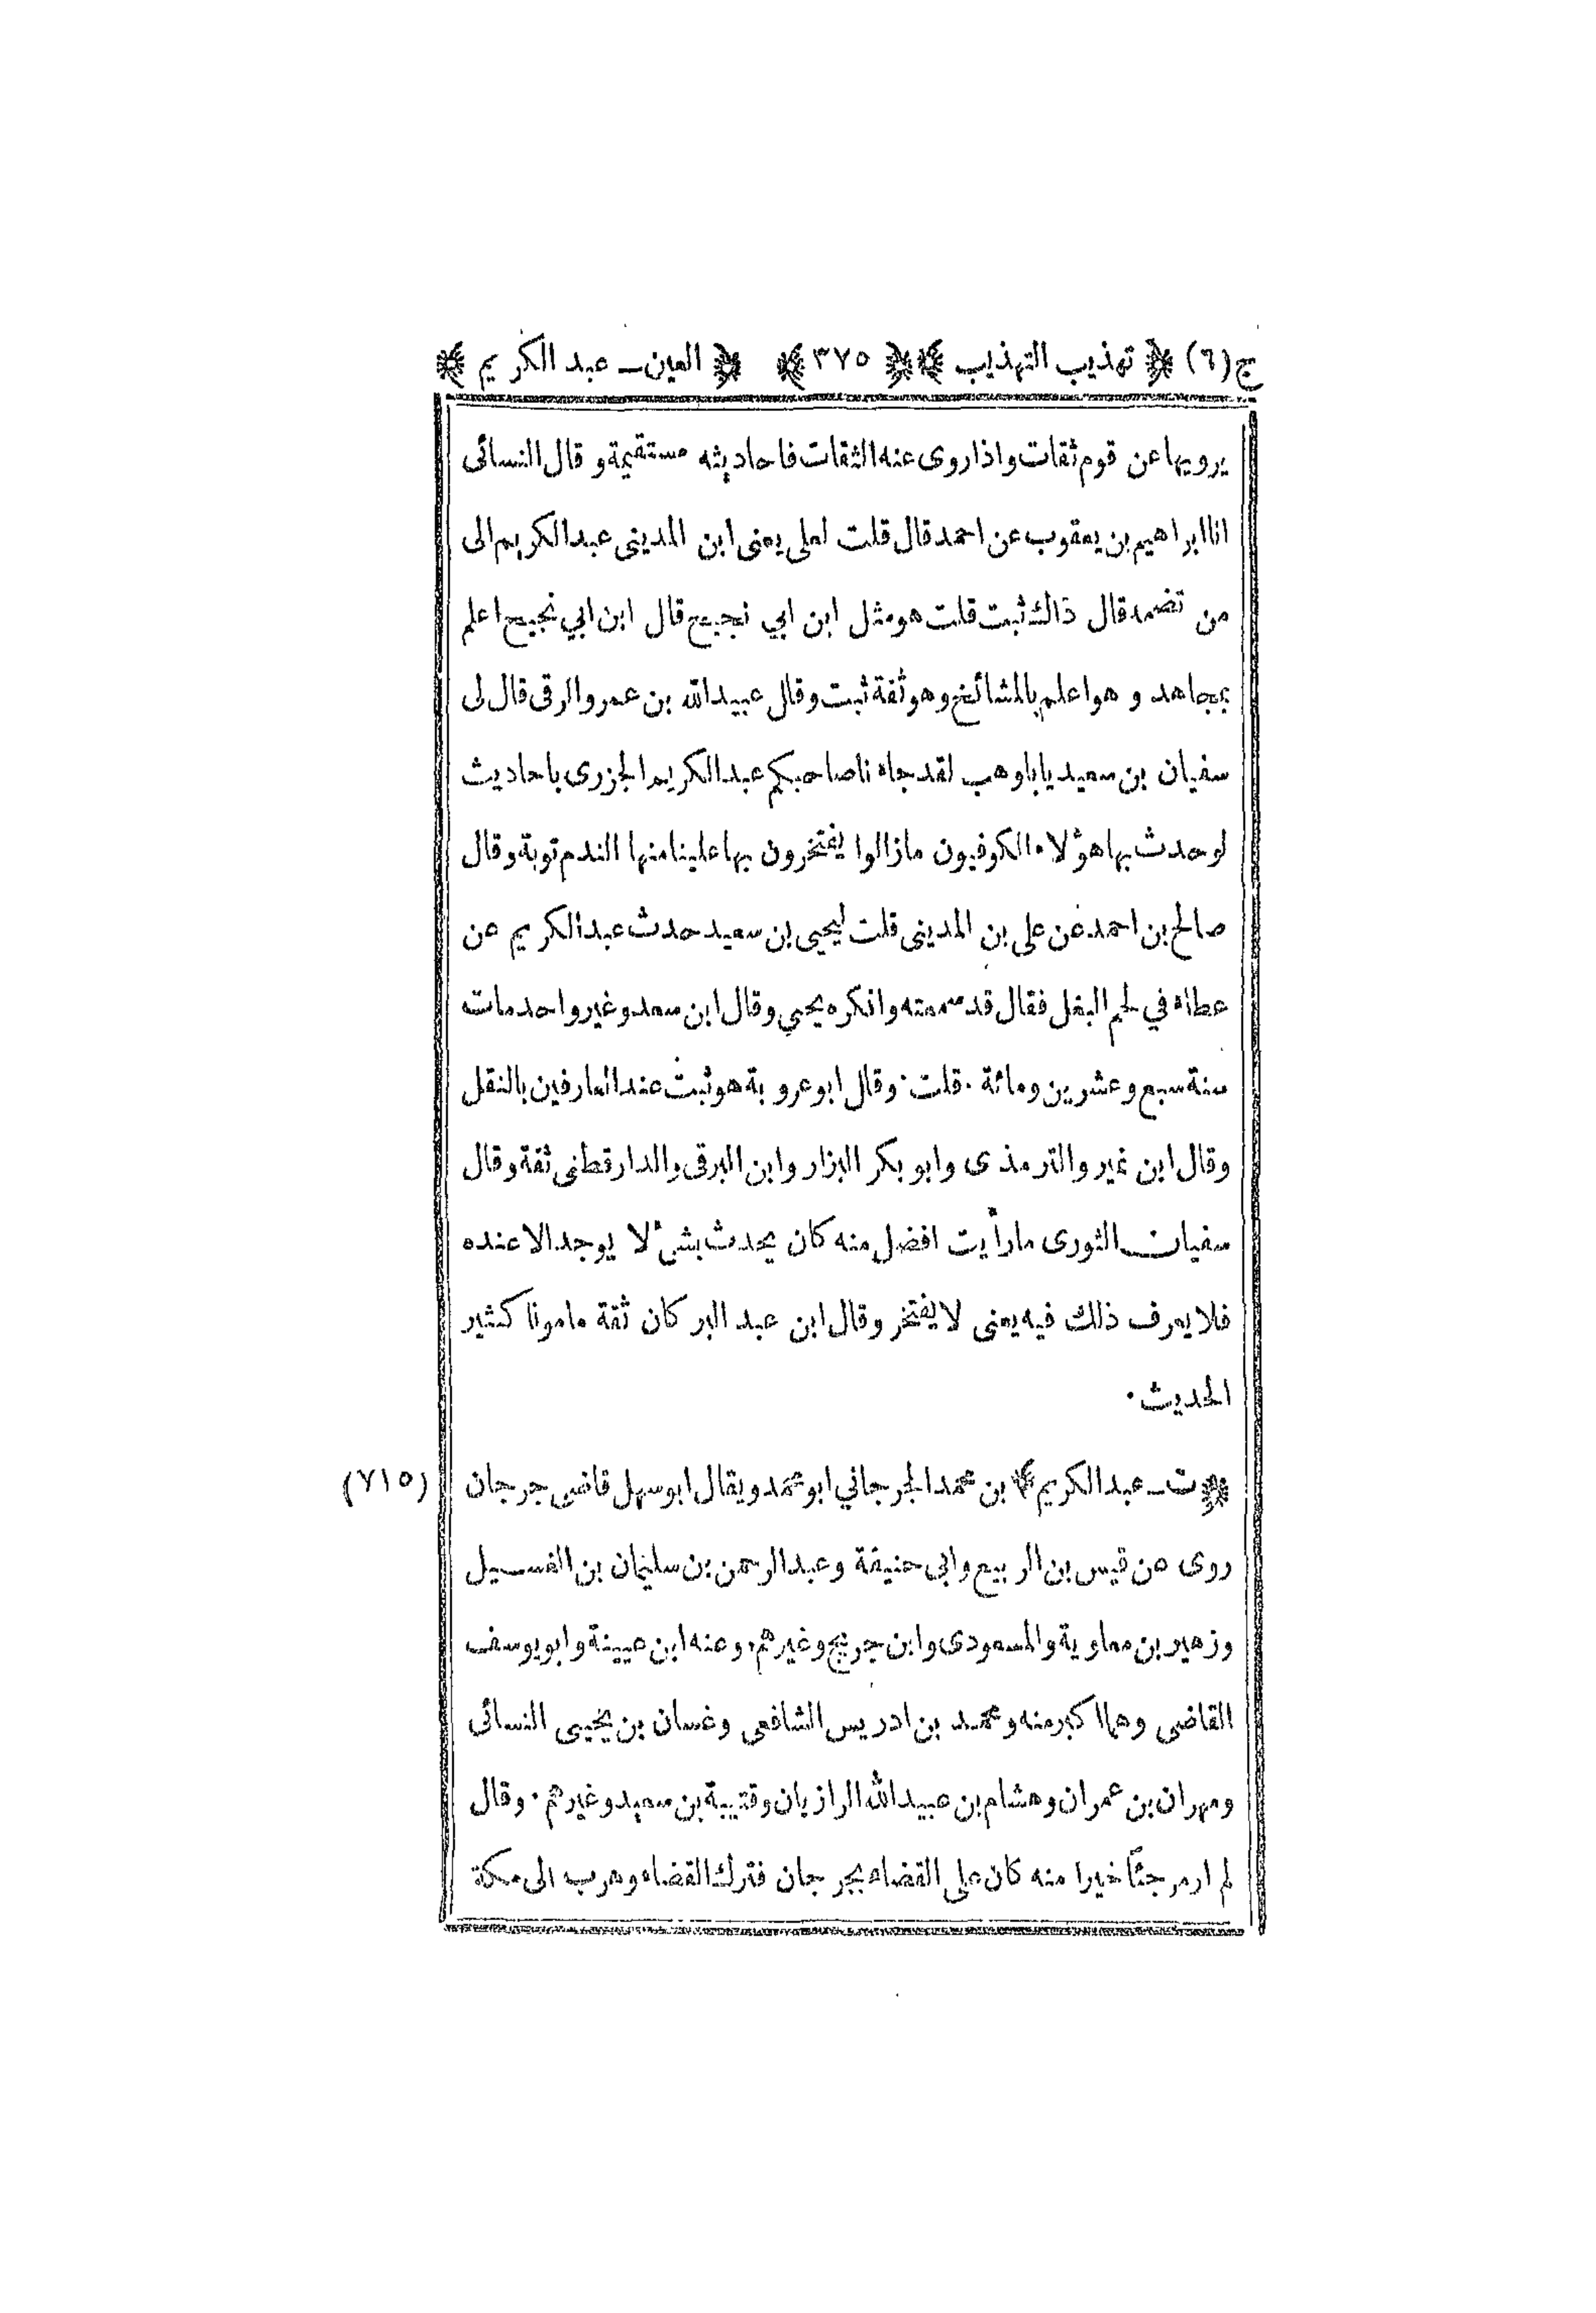 ج(٦) ﴿ تهذيب التهذيب ﴾ ﴿ ٣٧٥ ﴾ ﴿ العين ـ عبد الكريم ﴾
يرويها عن قوم ثقات واذا روى عنه الثقات فاحاديثه مستقيمة وقال النسائى
انا ابراهيم بن يعقوب عن احمد قال قلت لعلى يعنى ابن المدينى عبد الكريم الى
من تضمه قال ذاك ثبت قلت هو مثل ابن ابي نجيح قال ابن ابي نجيح اعلم
بمجاهد و هو اعلم بالمشائخ وهو ثقة ثبت وقال عبيد الله بن عمرو الرقى قال لى
سفيان بن سعيد يا باوهب لقد جاءنا صاحبكم عبد الكريم الجزرى باحاديث
لو حدث بها هؤلاء الكوفيون مازالوا يفتخرون بها علينا منها الندم توبة وقال
صالح بن احمد عن على بن المدينى قلت ليحيى بن سعيد حدث عبد الكريم عن
عطاء في لحم البغل فقال قد سمعته وانكره يحيى وقال ابن سعد وغير واحد مات
سنة سبع وعشرين ومائة ٠ قلت ٠ وقال ابو عروبة هو ثبت عند العارفين بالنقل
وقال ابن نمير والترمذى وابو بكر البزار وابن البرقى والدارقطنى ثقة وقال
سفيان الثورى مارأيت افضل منه كان يحدث بشئ لا يوجد الا عنده
فلا يعرف ذلك فيه يعنى لا يفتخر وقال ابن عبد البر كان ثقة مامونا كثير
الحديث ٠
﴿ ت ـ عبد الكريم ﴾ بن محمد الجرجاني ابو محمد ويقال ابو سهل قاضى جرجان (٧١٥)
روى عن قيس بن الربيع وابى حنيفة وعبد الرحمن بن سليمان بن الغسيل
وزهير بن معاوية والمسعودى وابن جريج وغيرهم ٠ وعنه ابن عيينة وابو يوسف
القاضى وهما اكبر منه ومحمد بن ادريس الشافعى وغسان بن يحيى النسائى
ومهران بن عمران وهشام بن عبيد الله الرازيان وقتيبة بن سعيد وغيرهم ٠ وقال
لم ار مرجئاً خيرا منه كان على القضاء بجرجان فترك القضاء وهرب الى مكة